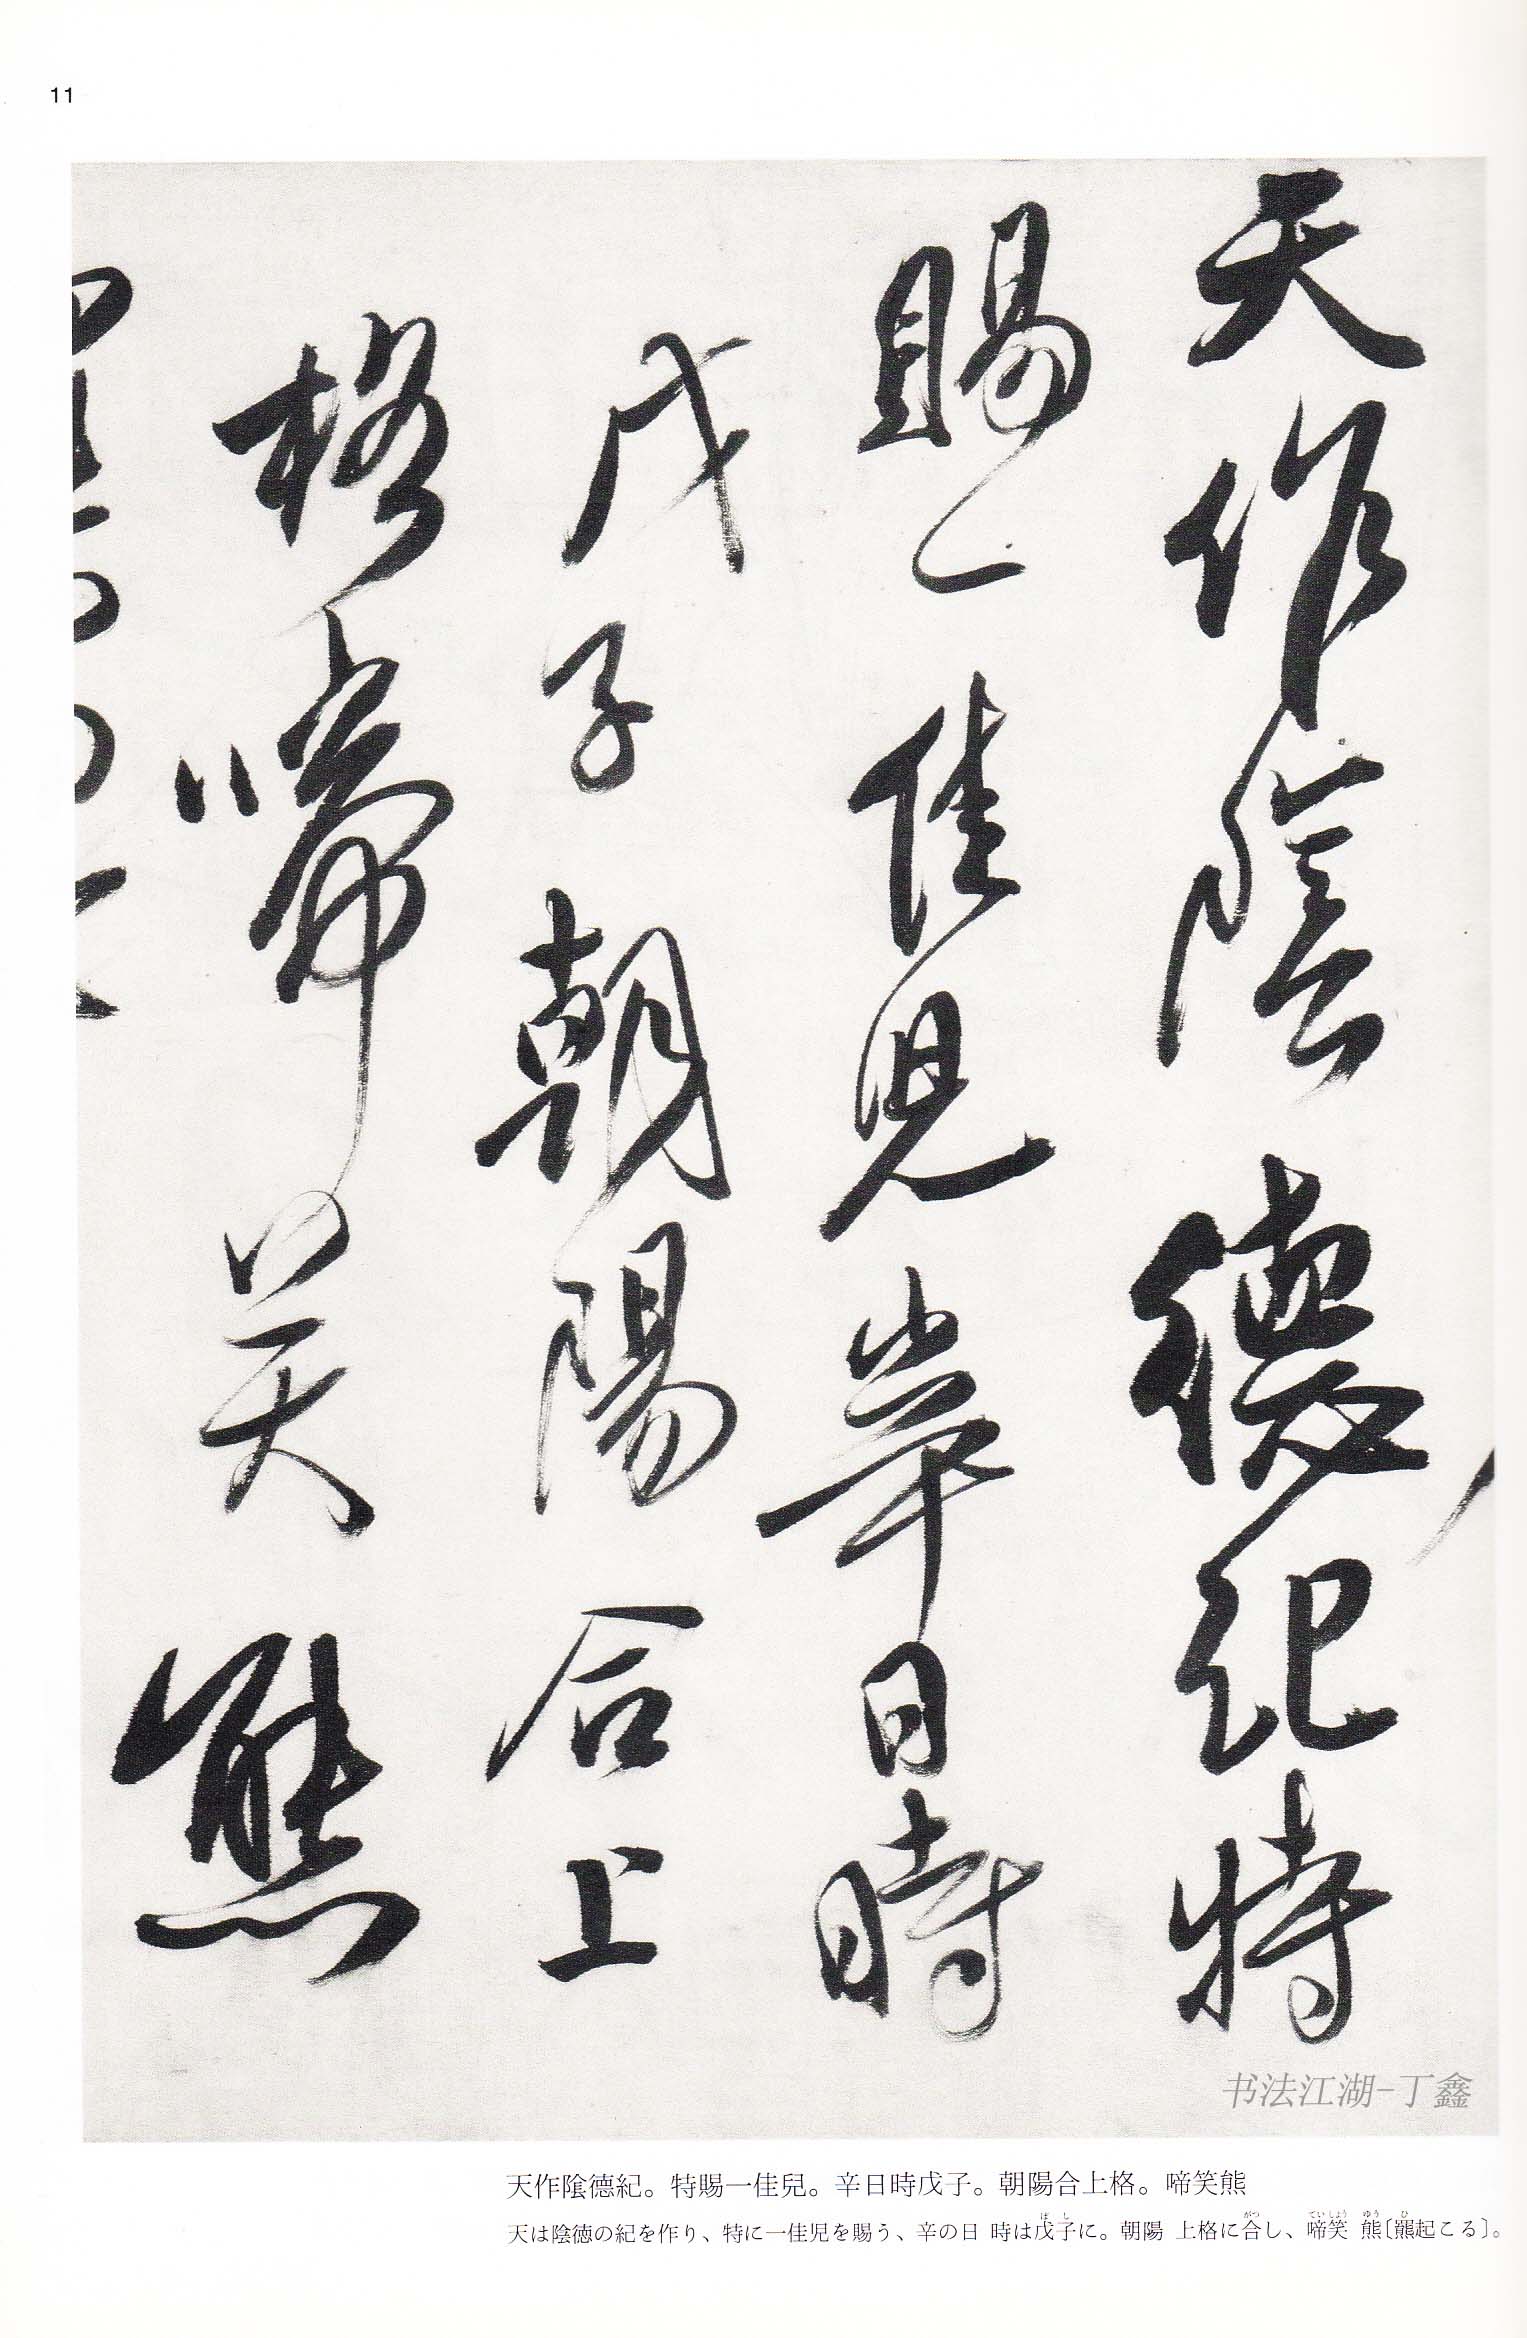 11
天作陰德紀特
賜一佳兒辛日時
戊子朝陽合上
格啼笑熊
书法江湖-丁鑫
天作陰德紀。特賜一佳兒。辛日時戊子。朝陽合上格。啼笑熊
天は陰徳の紀を作り、特に一佳児を賜う、辛の日 時は戊子に。朝陽 上格に合し、啼笑 熊〔羆起こる〕。